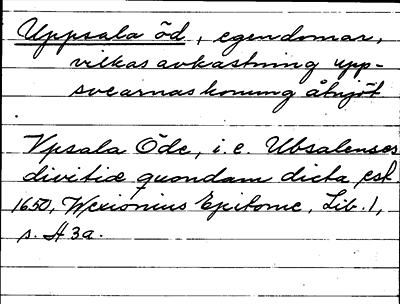 Uppsala öd, egendomar,
vilkas avkastning upp-
svearnas konung åtnjöt
Vpsala Öde, i.e. Ubsalenses
divitiæ quondam dicta est.
1650, Wexionius Epitome, Lib. 1,
s. H 3a.